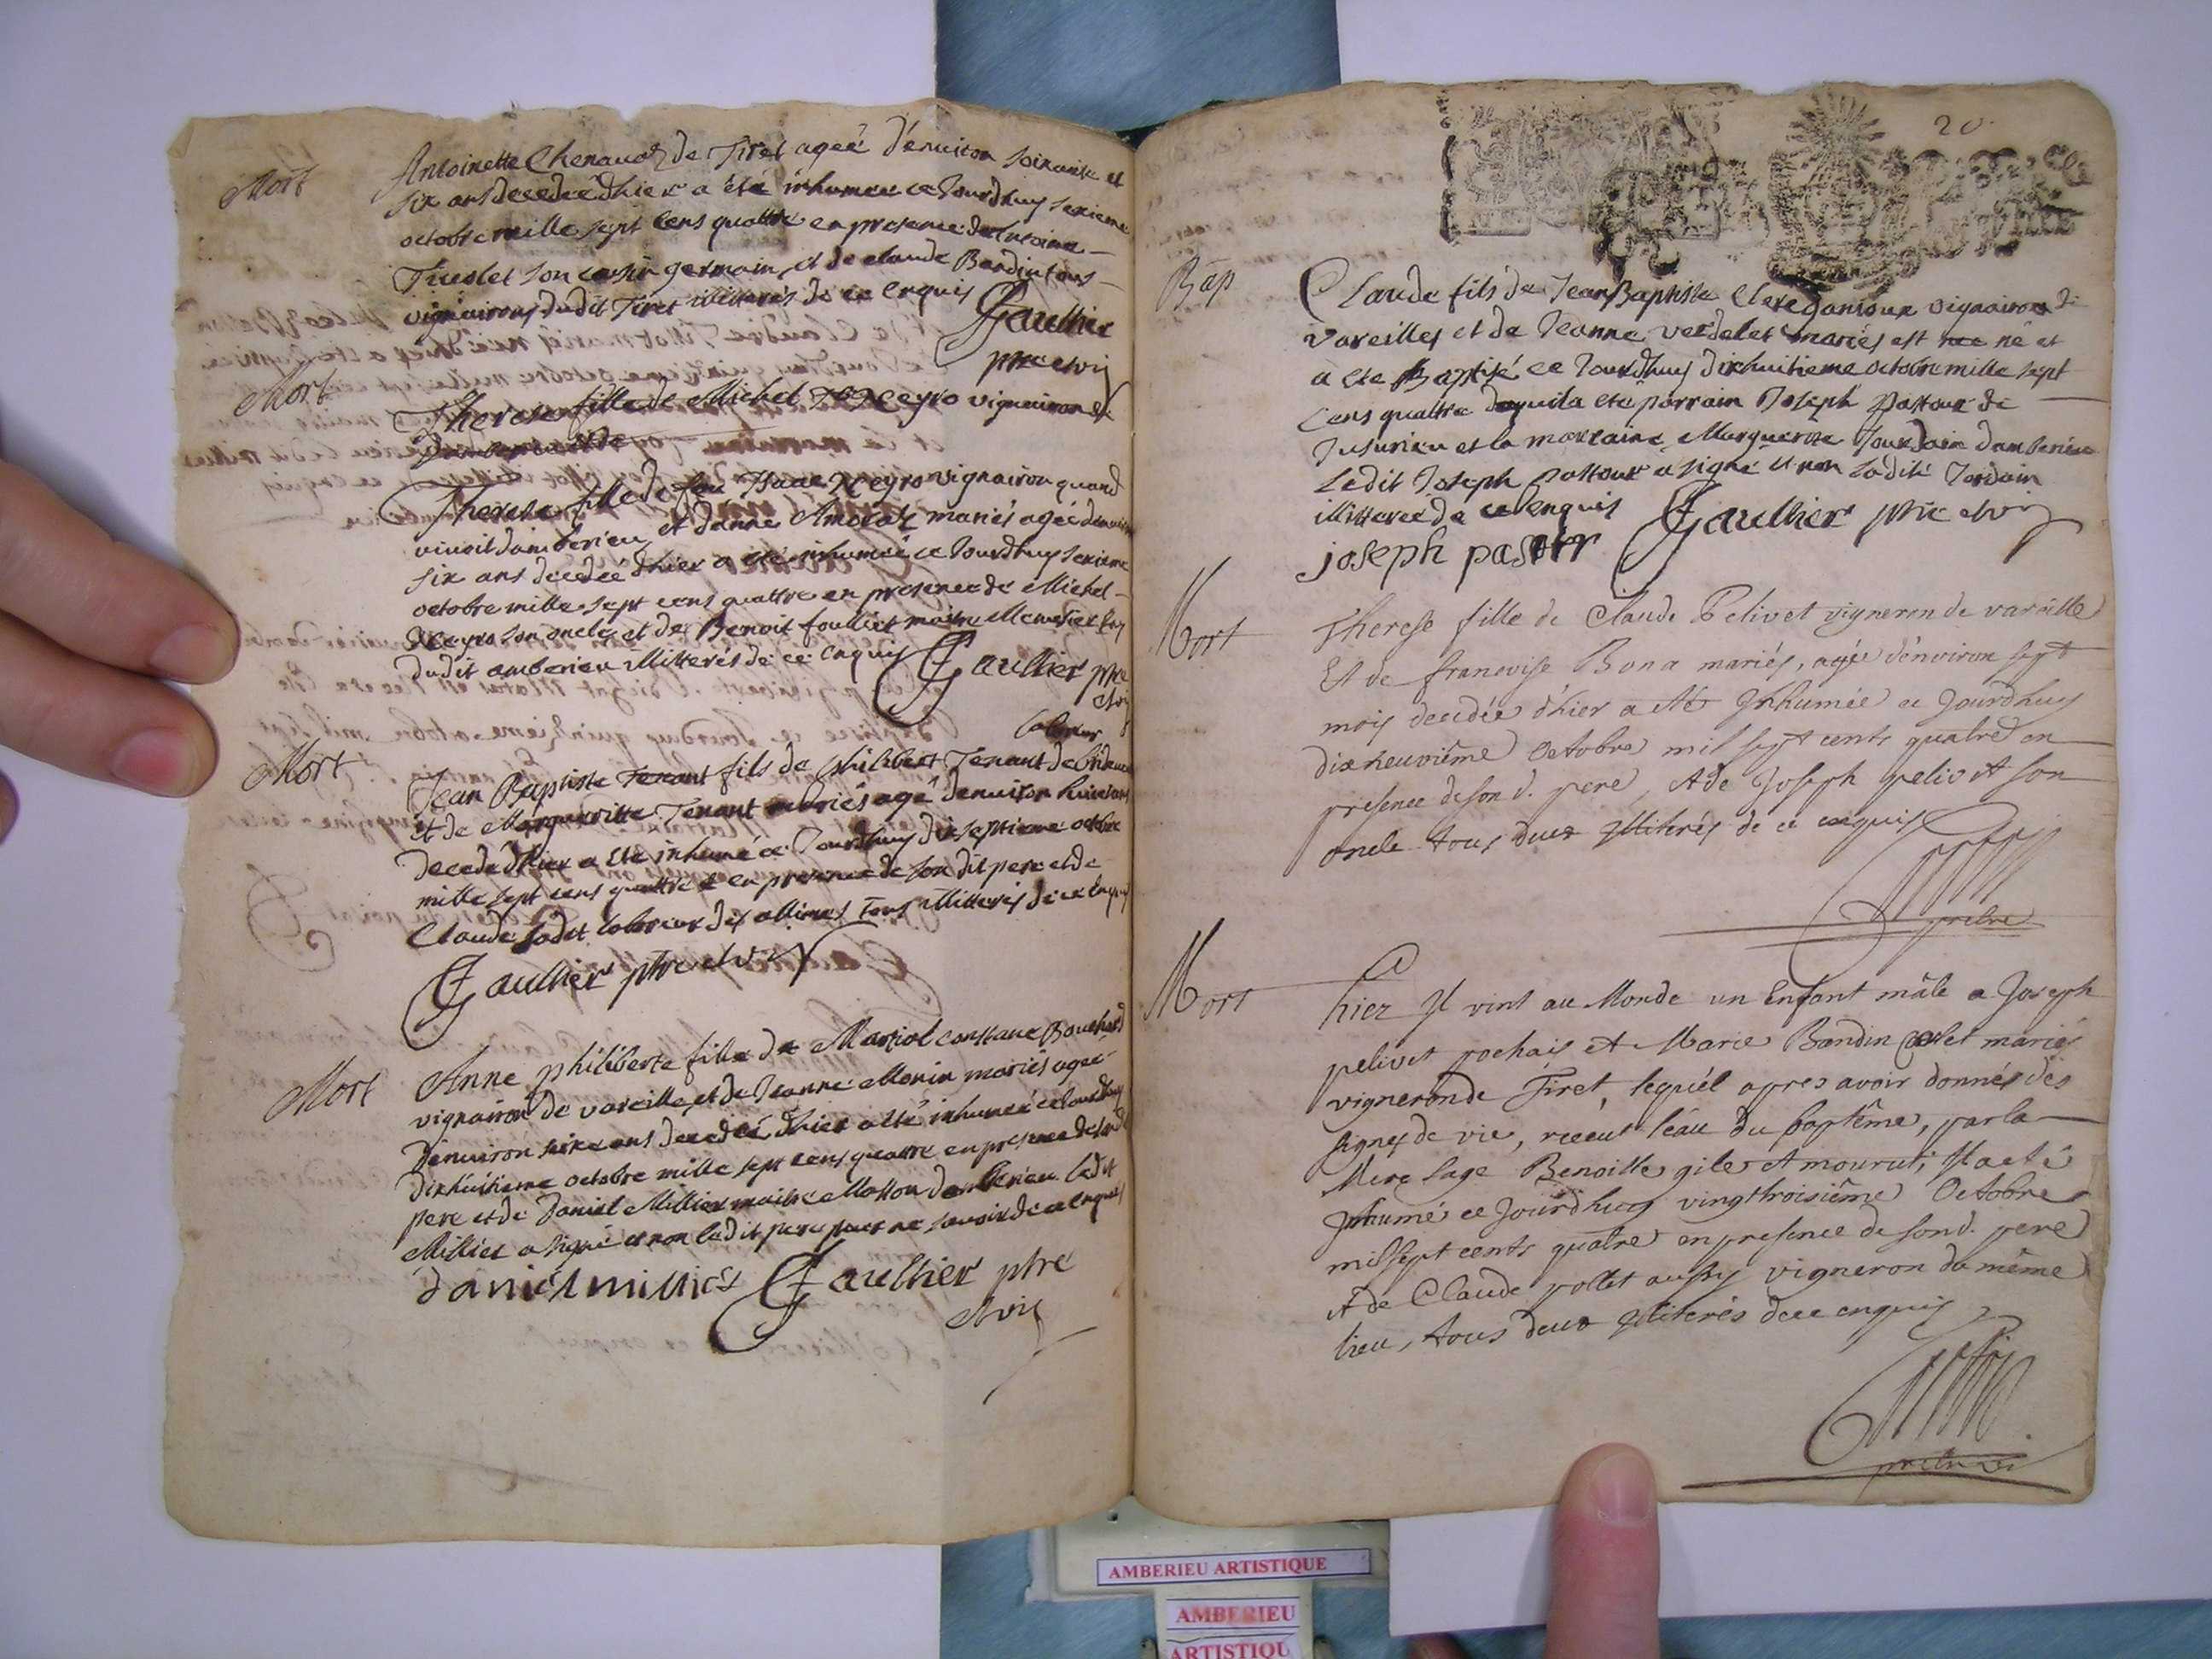 Mort
Antoinette Chenavaz de Tiret ageé d'enuiron soixante et
six ans decedeé dhier a été inhumeé ce Jourdhuy sexieme
octobre mille sept cens quattre en presence de Antoine
Tricolet son cousin germain, et de claude Bondin tous
vignairons dudit Tiret illitterés de ce enquis Gaulthier
ptre et vic
Mort
Therese fille de Michel Neyro vignairon
Damberieu et de
Therese fille de feu Isaac Neyro vignairon quand
vivoit damberieu et danne mariés ageé denuiron
six ans decedeé dhier a eté inhumeé ce Jourdhuy sexieme
octobre mille sept cens quattre en presence de Michel
Neyro son oncle et de Benoit foulliet maitre Menusier
dudit amberieu illitterés de ce enquis Gaulthier ptre
et vic
laboreur
Mort
Jean Baptiste Tenant fils de philibert Tenant de
et de Margueritte Tenant mariés agé denuiron huict ans
decedé dhier a eté inhumé ce Jourdhuy dixseptieme octobre
mille sept cens quattre en presence de son dit pere et de
Claude Jadet laboreur des allimes Tous illitterés de ce enquis
Gaulthier ptre et vic
Mort
Anne philiberte fille de Martial constant Bouchard
vignairon de vareille, et de Jeanne Monin mariés ageé
denuiron seixe ans decedeé dhier a été inhumeé ce Jourdhuy
dixhuitieme octobre mille sept cens quattre en presence de sondit
pere et de Daniel Milliet maitre Masson damberieu ledit
Milliet a signé et non ledit pere pour ne sauoir de ce enquis
daniel milliet Gaulthier ptre
et vic
20
Bap
Claude fils de Jean Baptiste vignairon de
vareilles et de Jeanne verdelet mariés est né et
a eté Baptisé ce Jourdhuy dixhuitieme octobre mille sept
cens quattre duquel a eté parrain Joseph pastour de
Jusurieu et la marraine Marguerite Jourdain damberieu
Ledit Joseph pastour a signé et non ladite Jordain
illitereé de ce enquis Gaulthier ptre et vic
joseph pastor
Mort
Therese fille de Claude Pelivet vigneron de vareille
Et de francoise Bona mariés, agée d'environ sept
mois decidée d'hier a eté Inhumée ce Jourdhuy
dixneuviême Octobre mil sept cents quatre en
presence de son d. pere, et de Joseph pelivet son
oncle tous deux Illiterés de ce enquis
prêtre
Mort
hier Il vint au Monde un Enfant mâle a Joseph
pelivet pochais et Marie Bondin mariés
vigneron de Tiret, lequél apres avoir donnés des
signes de vie, receut l'éau du baptême, par la
Mere sage Benoitte gile et mourut; Il a eté
Inhumé ce Jourdhuy vingttroisiême Octobre
mil sept cents quatre en presence de son d. pere
et de Claude pollet aussy vigneron du même
lieu, tous deux Illiterés de ce enquis
prêtre vic
AMBERIEU ARTISTIQUE
AMBERIEU
ARTISTIQU